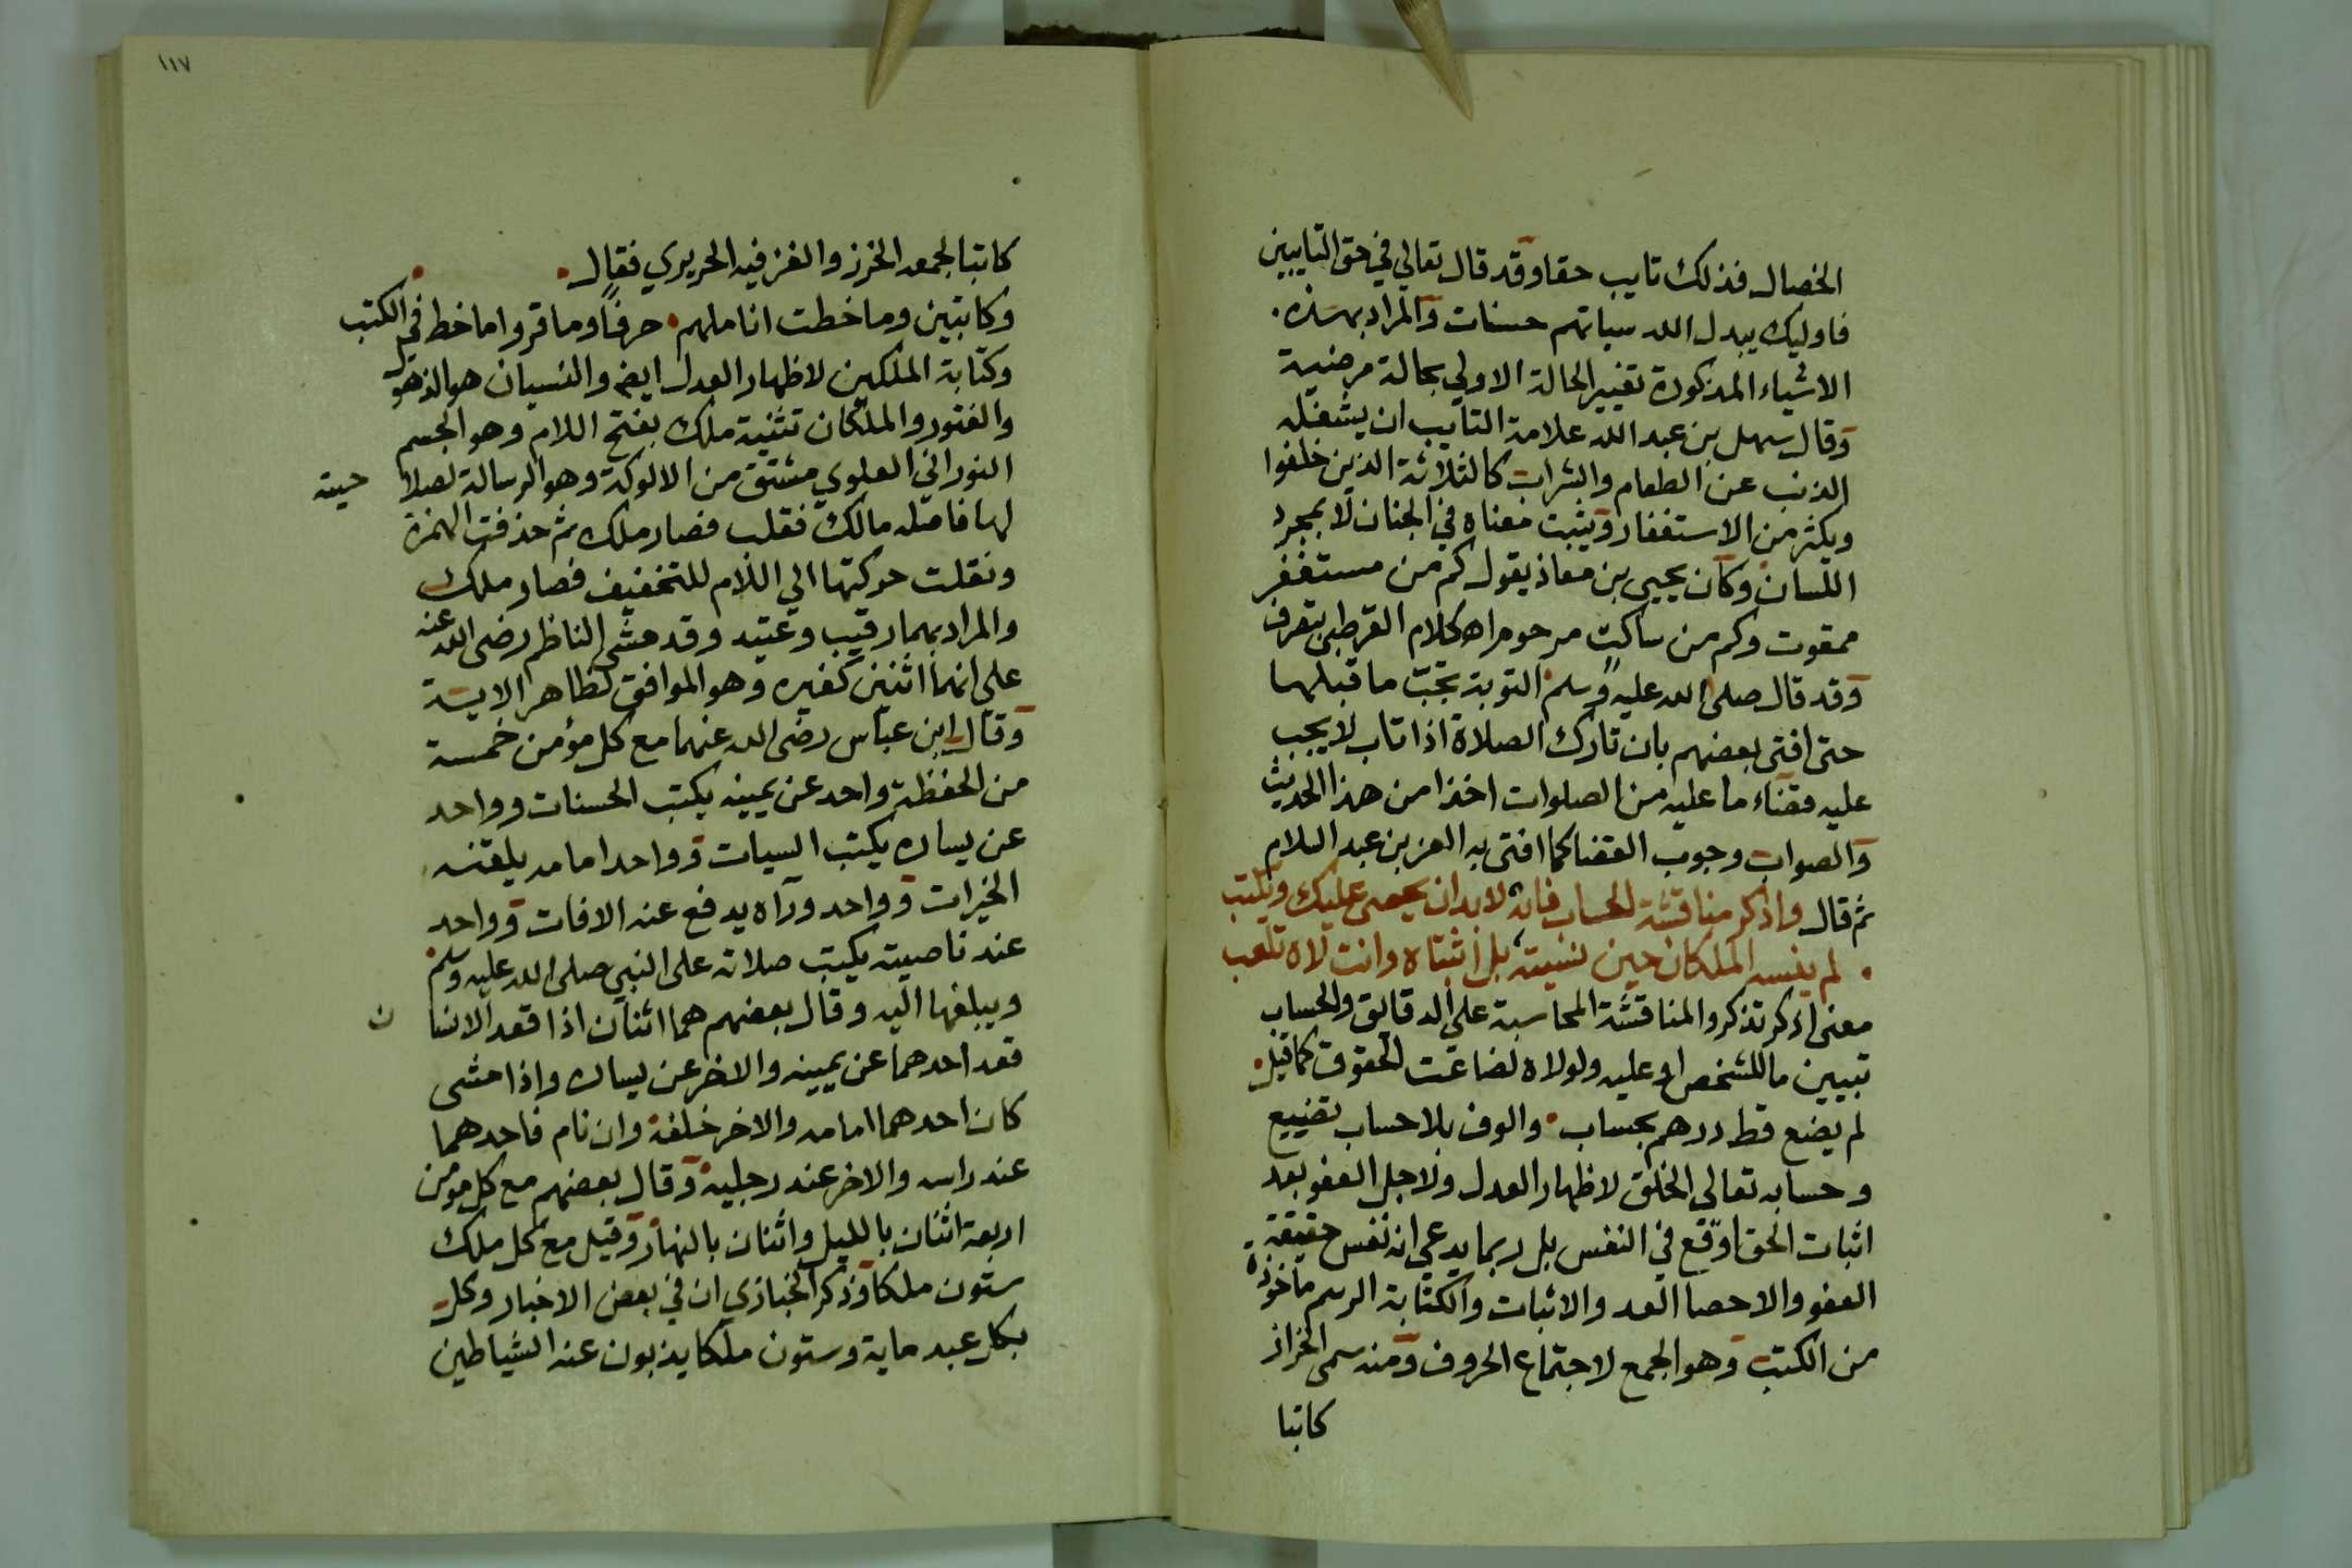 الخصال فذلك تايب حقا وقد قال تعالي في حق التايبين
فاوليك يبدل الله سياتهم حسنات والمراد بهذه
الاشياء المذكورة تغيير الحالة الاولي بحالة مرضية
وقال سهل بن عبد الله علامة التايب ان يشغله
الذنب عن الطعام والشراب كالثلاثة الذين خلفوا
ويكثر من الاستغفار ويثبت معناه في الجنان لا بمجرد
اللسان وكان يحيي بن معاذ يقول كم من مستغفر
ممقوت وكم من ساكت مرحوم اه كلام القرطبي بتعرف
وقد قال صلى الله عليه وسلم التوبة تجب ما قبلها
حتى افتى بعضهم بان تارك الصلاة اذا تاب لا يجب
عليه قضاء ما عليه من الصلوات اخذا من هذا الحديث
والصواب وجوب القضا كما افتى به العز بن عبد السلام
ثم قال واذكر مناقشة الحساب فانه لا بد ان يحصى عليك ويكتب
لم ينسه الملكان حين نسيته بل اثبتاه وانت لاه تلعب
معنى اذكر تذكر والمناقشة المحاسبة على الدقائق والحساب
تبيين ما للشخص او عليه ولولاه لضاعت الحقوق كما قيل
لم يضع قط درهم بحساب والوف بلا حساب تضييع
وحسابه تعالى الخلق لاظهار العدل ولاجل العفو بعد
اثبات الحق اوقع في النفس بل ربما يدعي انه نفس حقيقة
العفو والاحصا العد والاثبات والكتابة الرسم ماخوذة
من الكتب وهو الجمع لاجتماع الحروف ومنه سمى الخراز
كاتبا
١١٧
كاتبا لجمعه الخرز والغز فيه الحريري فقال
وكاتبين وما خطت اناملهم حرفا وما قروا ما خط في الكتب
وكتابة الملكين لاظهار العدل ايضا والنسيان هو الذهو
والفتور والملكان تثنية ملك بفتح اللام وهو الجسم
النوراني العلوي مشتق من الالوكة وهو الرسالة لصلا حيته
لها فاصله مالك فقلب فصار ملك ثم حذفت الهمزة
ونقلت حركتها الي اللام للتخفيف فصار ملك
والمراد بهما رقيب وعتيد وقد مشى الناظم رضى الله عنه
على انهما اثنين كغيره وهو الموافق لظاهر الاية
وقال ابن عباس رضى الله عنهما مع كل مؤمن خمسة
من الحفظة واحد عن يمينه يكتب الحسنات وواحد
عن يساره يكتب السيات وواحد امامه يلقنه
الخيرات وواحد ورآه يدفع عنه الافات وواحد
عند ناصيته يكتب صلاته على النبي صلى الله عليه وسلم
ويبلغها اليه وقال بعضهم هما اثنان اذا قعد الانسا ن
قعد احدهما عن يمينه والاخر عن يساره واذا مشى
كان احدهما امامه والاخر خلفه وان نام فاحدهما
عند راسه والاخر عند رجليه وقال بعضهم مع كل مومن
اربعة اثنان بالليل واثنان بالنهار وقيل مع كل ملك
ستون ملكا وذكر الخبازي ان في بعض الاخبار وكل
بكل عبد ماية وستون ملكا يذبون عنه الشياطين